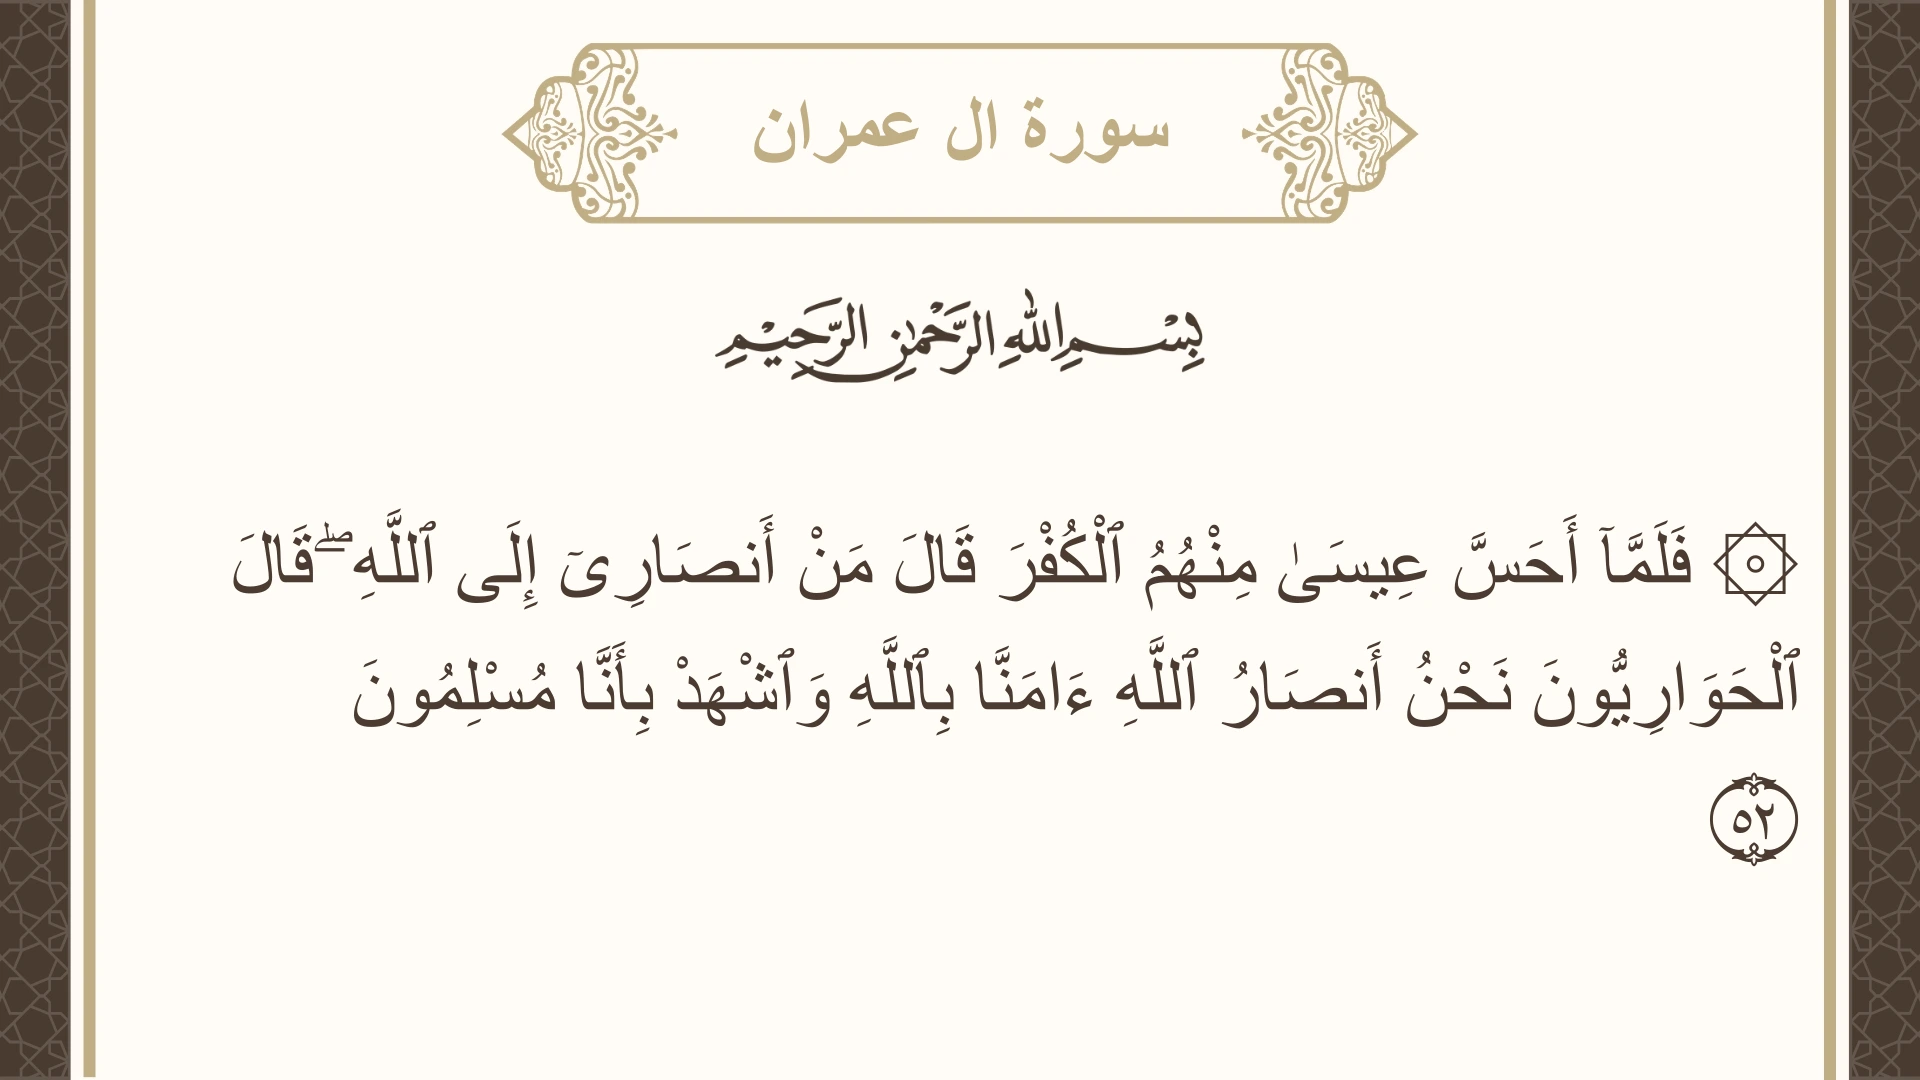 سورة ال عمران
بِسْمِ اللهِ الرَّحْمٰنِ الرَّحِيْمِ
۞ فَلَمَّآ أَحَسَّ عِيسَىٰ مِنْهُمُ ٱلْكُفْرَ قَالَ مَنْ أَنصَارِىٓ إِلَى ٱللَّهِ ۖ قَالَ
ٱلْحَوَارِيُّونَ نَحْنُ أَنصَارُ ٱللَّهِ ءَامَنَّا بِٱللَّهِ وَٱشْهَدْ بِأَنَّا مُسْلِمُونَ
٥٢